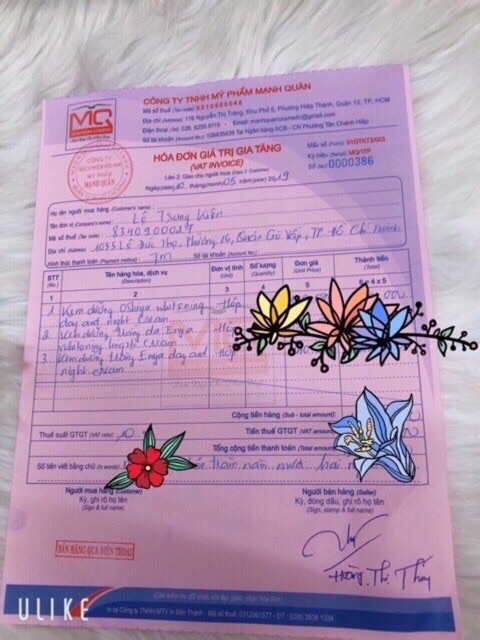 MQ
CÔNG TY TNHH MỸ PHẨM MẠNH QUÂN
Mã số thuế (Tax code):
Địa chỉ (Address): 176 Nguyễn Thị Tràng, Khu Phố 6, Phường Hiệp Thành, Quận 12, TP. HCM
Điện thoại (Tel): 028. 6255 9119 - Email: manhquancosmetic@gmail.com
Số tài khoản (Account No.): 108435438 Tại Ngân hàng ACB - CN Phường Tân Chánh Hiệp
CÔNG TY
MỸ PHẨM
MẠNH QUÂN
HÓA ĐƠN GIÁ TRỊ GIA TĂNG
(VAT INVOICE)
Liên 2: Giao cho người mua (Copy 2: Customer)
Ngày (date) 10 tháng (month) 05 năm (year) 2019
Mẫu số (Form): 01GTKT3/003
Ký hiệu (Serial): MQ/17P
Số (No.): 0000386
Họ tên người mua hàng (Customer's name):
Tên đơn vị (Company's name): Lê Trung Kiên
Mã số thuế (Tax code): 8340900027
Địa chỉ (Address): 1055 Lê Đức Thọ, Phường 16, Quận Gò Vấp, TP Hồ Chí Minh
Hình thức thanh toán (Payment method): TM Số tài khoản (Account No.):
STT Tên hàng hóa, dịch vụ (Description) Đơn vị tính (Unit) Số lượng (Quantity) Đơn giá (Unit Price) Thành tiền (Total)
1 2 3 4 5 6 = 4 x 5
1 Kem dưỡng Whitening Hộp
day and night cream
2 Kem dưỡng trắng da Enya Hộp
whitening cream
3 Kem dưỡng trắng Enya day and Hộp
night cream
Cộng tiền hàng (Sub - total amount):
Thuế suất GTGT (VAT rate): 10 Tiền thuế GTGT (VAT amount):
Tổng cộng tiền thanh toán (Total amount):
Số tiền viết bằng chữ (In words): trăm năm mươi hai
Người mua hàng (Customer)
Ký, ghi rõ họ tên
(Sign & full name)
Người bán hàng (Seller)
Ký, đóng dấu, ghi rõ họ tên
(Sign, stamp & full name)
BÁN HÀNG QUA ĐIỆN THOẠI
Hoàng Thị Thúy
(Cần kiểm tra đối chiếu khi lập, giao, nhận hóa đơn)
In tại Công ty TNHH MTV In Bến Thành - Mã số thuế: 0312961577 - ĐT: (028) 3938 1334
ULIKE